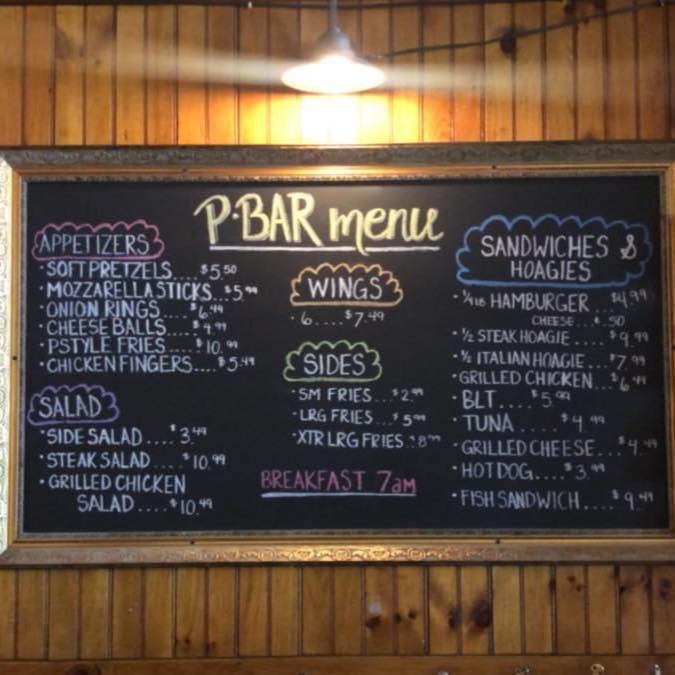 P·BAR menu
APPETIZERS
· SOFT PRETZELS.... $5.50
· MOZZARELLA STICKS... $5.99
· ONION RINGS.... $6.49
· CHEESE BALLS.... $4.99
· PSTYLE FRIES..... $10.99
· CHICKEN FINGERS.... $5.49
SALAD
· SIDE SALAD.... $3.49
· STEAK SALAD.... $10.99
· GRILLED CHICKEN
SALAD.... $10.49
WINGS
· 6.... $7.49
SIDES
· SM FRIES... $2.99
· LRG FRIES... $5.99
· XTR LRG FRIES.. $8.99
BREAKFAST 7am
SANDWICHES &
HOAGIES
· 1/4 LB HAMBURGER... $4.99
CHEESE... $.50
· 1/2 STEAK HOAGIE.... $9.99
· 1/2 ITALIAN HOAGIE... $7.99
· GRILLED CHICKEN... $6.49
· BLT.... $5.99
TUNA.... $4.99
· GRILLED CHEESE... $4.49
· HOT DOG.... $3.99
· FISH SANDWICH.... $9.49